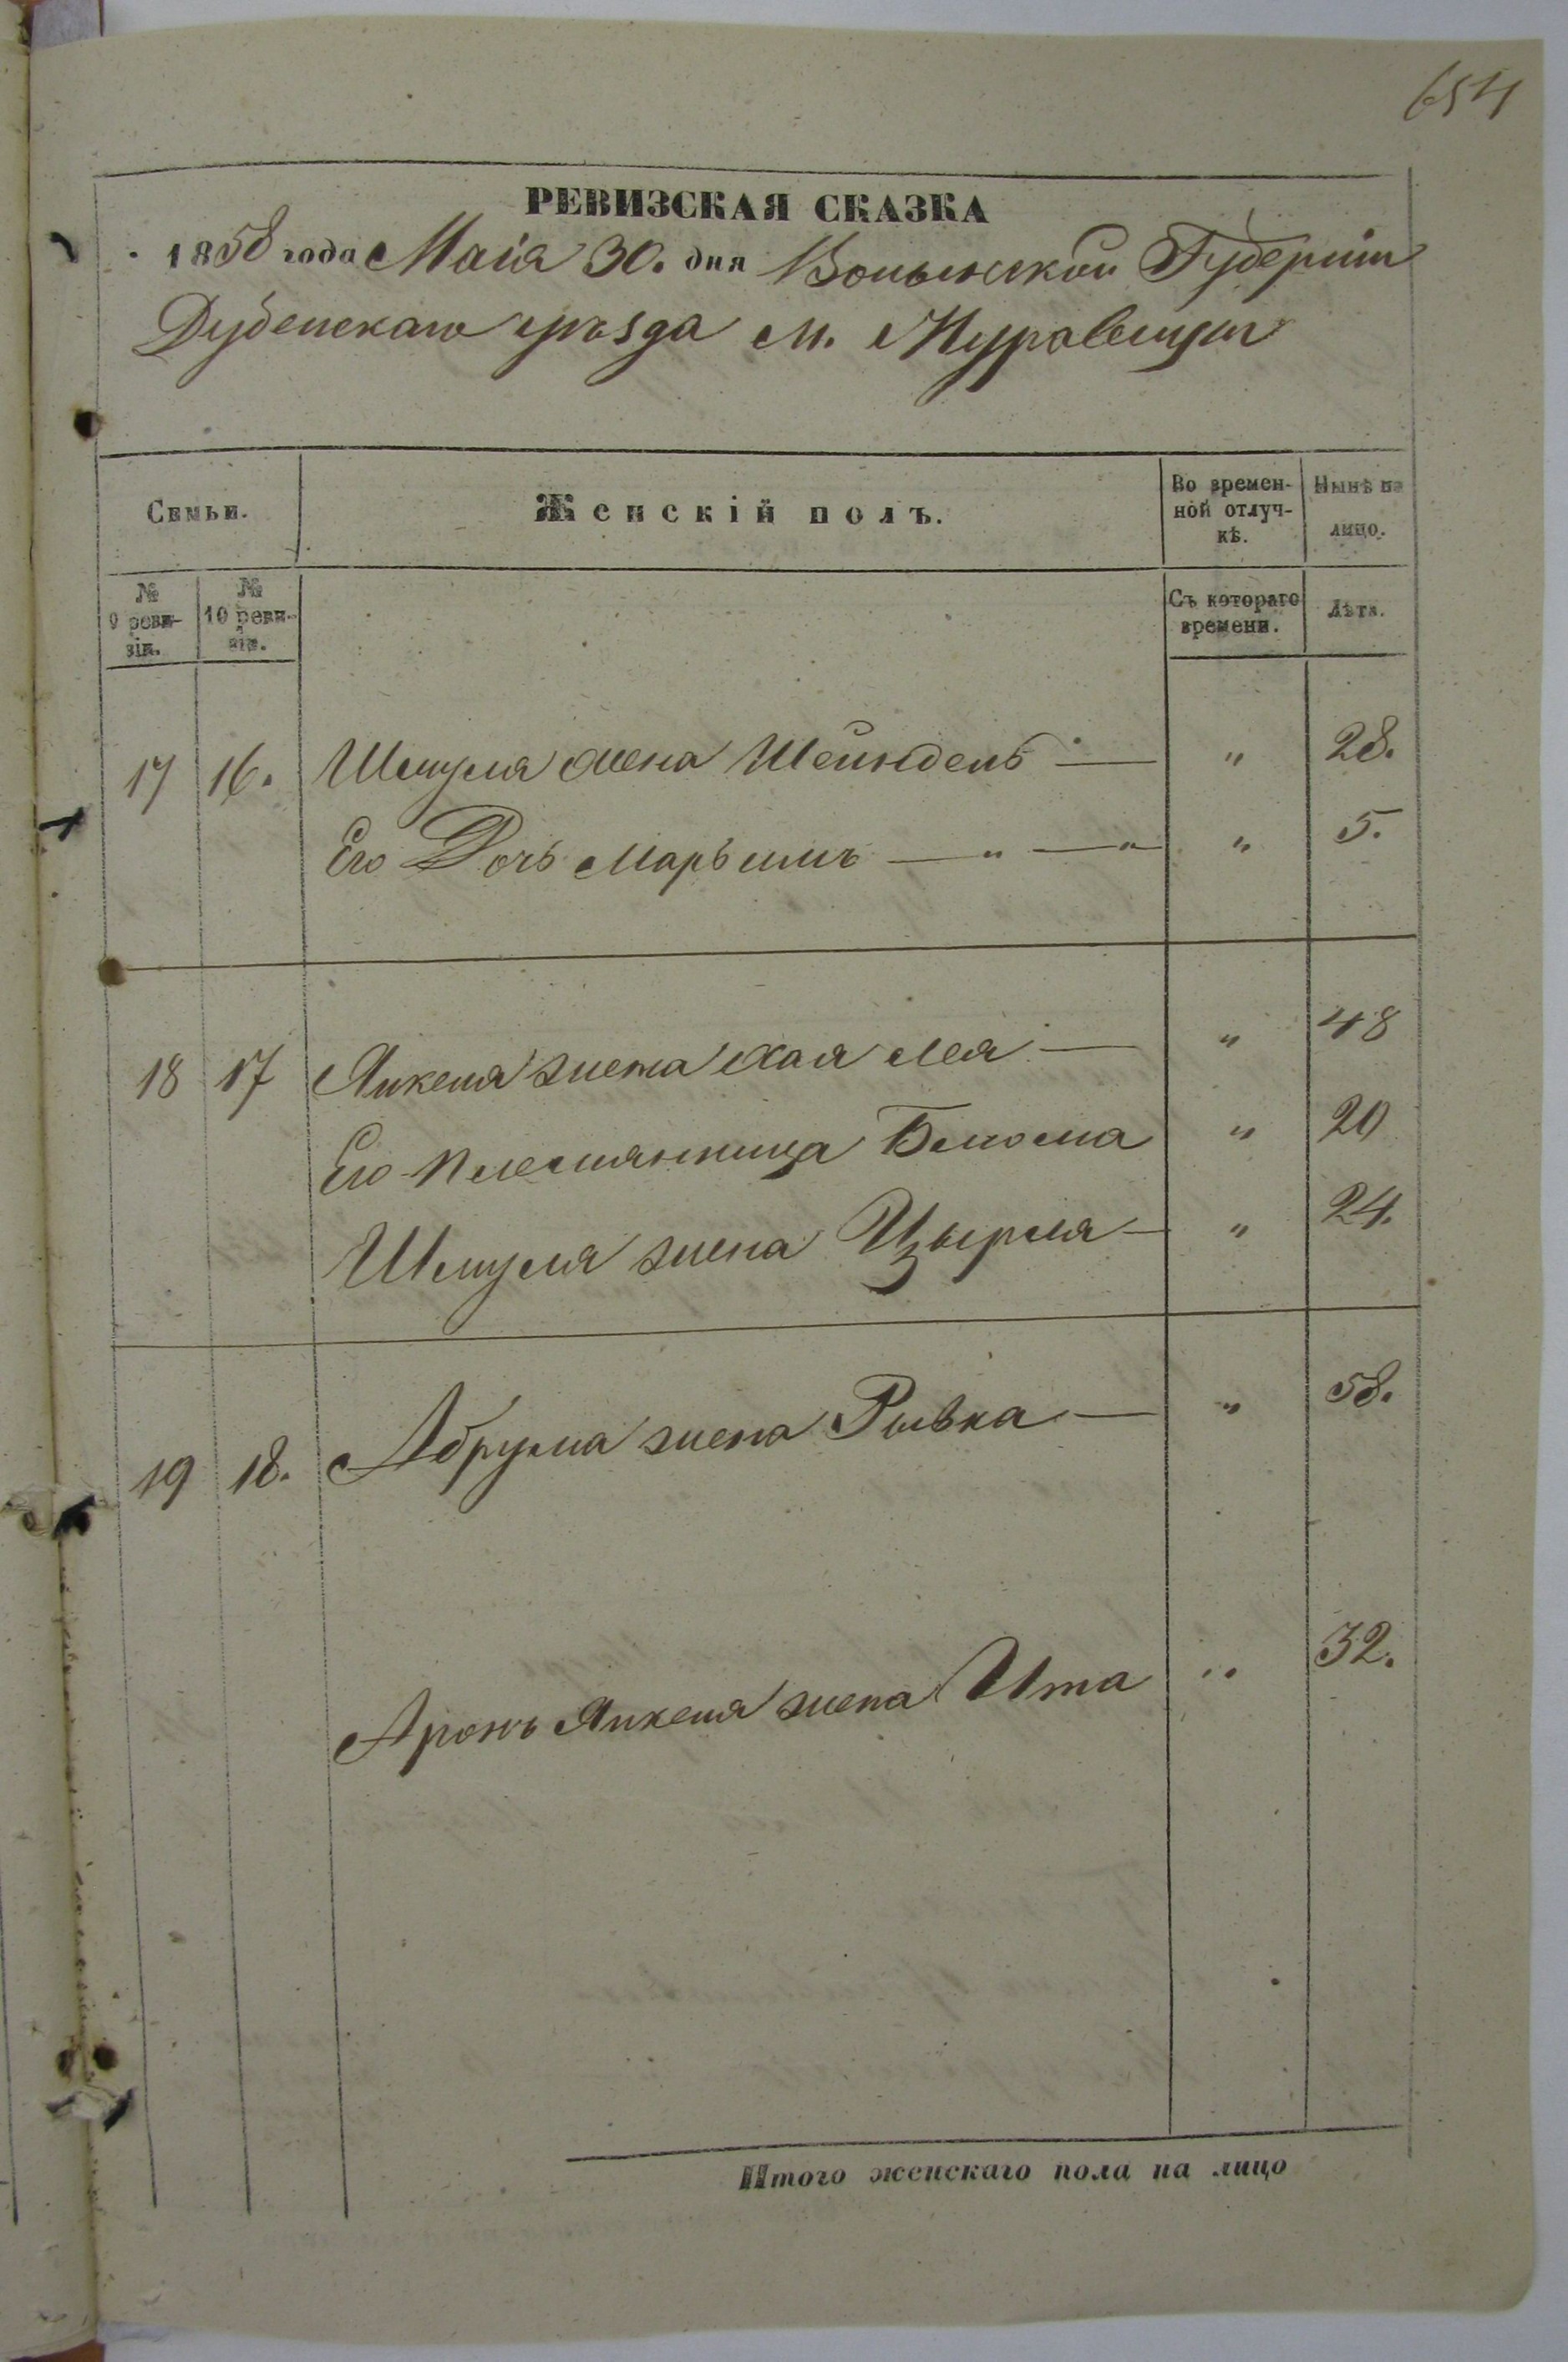 654
РЕВИЗСКАЯ СКАЗКА
1858 года Маія 30. дня Волынской Губерніи
Дубенскаго уѣзда м. Муравицы
Семьи.
Женскій полъ.
Во времен-
ной отлуч-
кѣ.
Нынѣ на
лицо.
№
9 реви-
зіи.
№
10 реви-
зіи.
Съ котораго
времени.
Лѣта.
17 16. Шмуля жена Шейндель — " 28.
Его Дочь Марьимъ — " — " " 5.
18 17 Янкеля жена Хая Лея — " 48
Его племянница " 20
Шмуля жена Цырля — " 24.
19 18. Абрума жена Рывка — " 58.
Аронъ Янкеля жена Ита " 32.
Итого женскаго пола на лицо